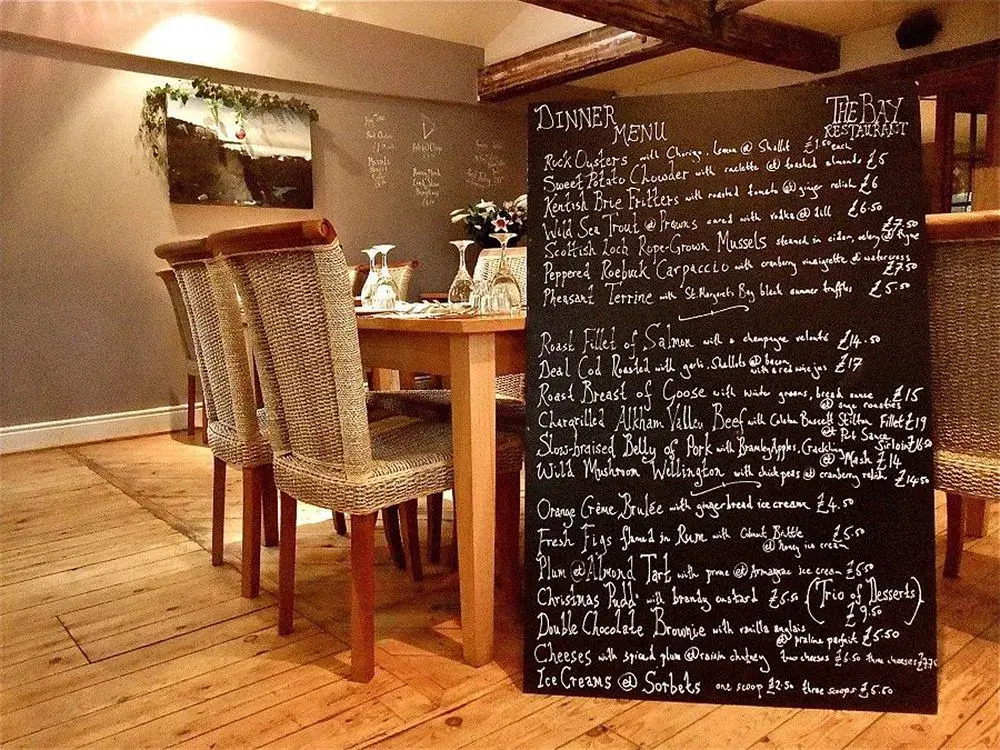 DINNER
MENU
THE BAY
RESTAURANT
Rock Oysters with Chorizo, Lemon @ Shallot £1.50 each
Sweet Potato Chowder with raclette @ toasted almonds £5
Kentish Brie Fritters with roasted tomato @ ginger relish £6
Wild Sea Trout @ Prawns cured with vodka @ dill £6.50
Scottish Loch Rope-Grown Mussels steamed in cider, celery @ thyme £7.50
Peppered Roebuck Carpaccio with cranberry vinaigrette @ watercress £7.50
Pheasant Terrine with St. Margarets Bay black summer truffles £5.50
Roast Fillet of Salmon with a champagne velouté £14.50
Deal Cod Roasted with garlic, Shallots @ bacon £17
with a red wine jus
Roast Breast of Goose with winter greens, bread sauce £15
@ sage roasties
Chargrilled Alkham Valley Beef with Colston Bassett Stilton Fillet £19
@ Port Sauce Sirloin £16.50
Slow-braised Belly of Pork with Bramley Apples, Crackling
@ Mash £14
Wild Mushroom Wellington with chickpeas @ cranberry relish £14.50
Orange Crême Brulée with gingerbread ice cream £4.50
Fresh Figs flamed in Rum with Cobnut Brittle £5.50
@ honey ice cream
Plum @ Almond Tart with prune @ Armagnac ice cream £5.50
Christmas Pudd' with brandy custard £5.50
(Trio of Desserts)
£9.50
Double Chocolate Brownie with vanilla anglais
@ praline parfait £5.50
Cheeses with spiced plum @ raisin chutney two cheeses £6.50 three cheeses £7.75
Ice Creams @ Sorbets one scoop £2.50 three scoops £5.50